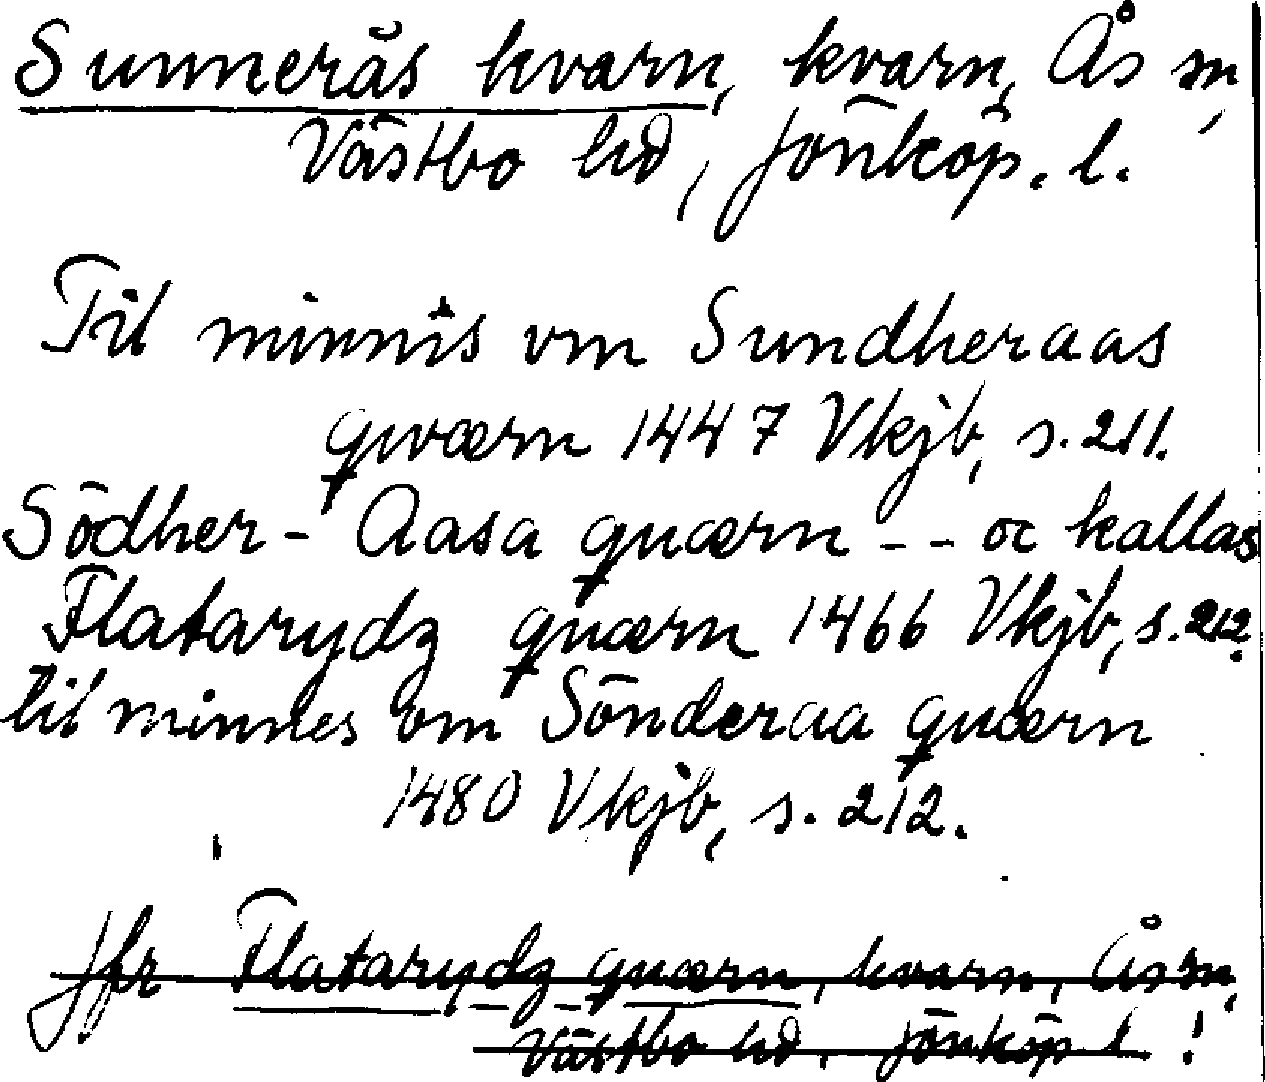 Sunnerås kvarn, kvarn, Ås sn,
Västbo hd, Jönköp. l.
Til minnis vm Sundheraas
qwærn 1447 Vkjb, s. 211.
Södher-Aasa quærn -- oc kallas
Flatarydz quærn 1466 Vkjb, s. 212.
til minnes om Sönderaa quærn
1480 Vkjb, s. 212.
Jfr Flatarydz quærn, kvarn, Ås sn,
Västbo hd, Jönköp l !